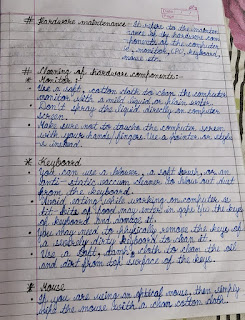 # Hardware maintenance - It refers to the mainte-
nance of hardware com-
ponents of the computer
i.e., monitor, CPU, keyboard,
mouse etc.
# Cleaning of hardware components:-
* Monitor:-
• Use a soft, cotton cloth to clean the computer
monitor with a mild liquid or plain water.
• Don't spray the liquid directly on computer
screen.
• Make sure not to touch the computer screen
with your hands/fingers. Use a pointer or stylus
instead.
* Keyboard
• You can use a blower, a soft brush, or an
anti-static vacuum cleaner to blow out dust
from the keyboard.
• Avoid eating while working on computer as
bits of food may enter in gaps b/w the keys
of keyboard and damage it.
• You may need to physically remove the keys of
a severely dirty keyboard to clean it.
• Use a soft, damp cloth to clean the oil
and dirt from top surface of the keys.
* Mouse
• If you are using an optical mouse, then simply
wipe the mouse with a clean cotton cloth.